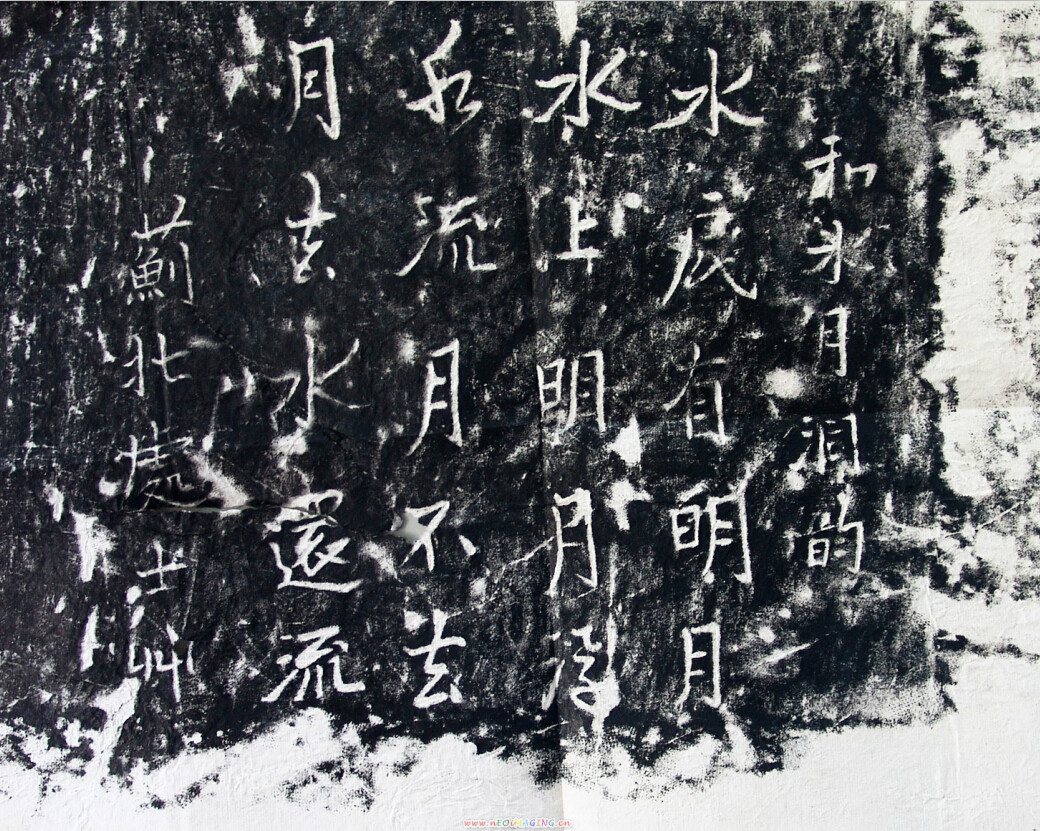 和水月洞韵
水底有明月
水上明月浮
水流月不去
月去水還流
薊北處士
www.nEOiMAGING.cn